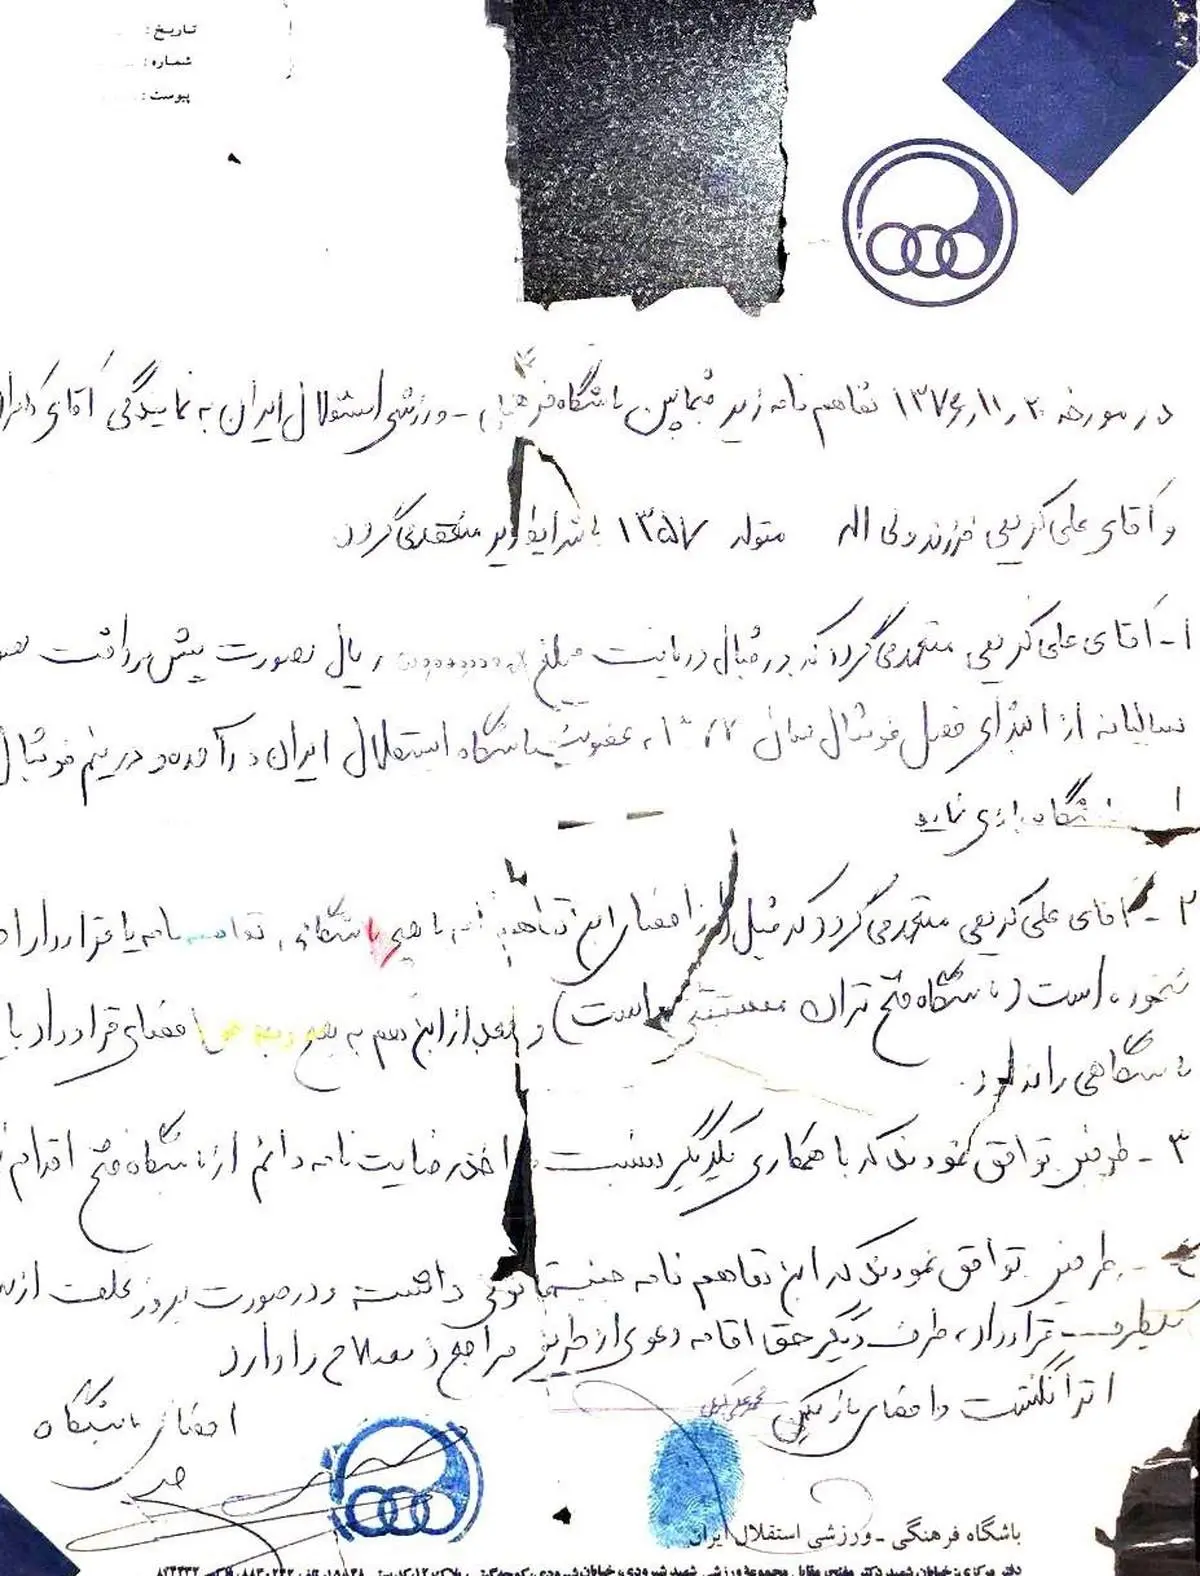 تاریخ :
شماره :
پیوست :
در مورخه ۱۳۷۶٫۱۱٫۲۰ تفاهم نامه زیر فیمابین باشگاه فرهنگی - ورزشی استقلال ایران به نمایندگی آقای
و آقای علی کریمی فرزند ولی اله متولد ۱۳۵۷ با شرایط زیر منعقد می گردد
۱- آقای علی کریمی متعهد می گردد که در قبال دریافت مبلغ ریال بصورت پیش پرداخت
سالیانه از ابتدای فصل فوتبال سال به عضویت باشگاه استقلال ایران در آمده و در تیم فوتبال
باشگاه بازی نماید
۲- آقای علی کریمی متعهد می گردد که قبل از امضای این تفاهم نامه با هیچ باشگاهی تفاهم نامه یا قرارداد
نموده است (باشگاه فتح تهران مستثنی است) و بعد از این هم به هیچ وجه حق امضای قرارداد با
باشگاهی را ندارد.
۳- طرفین توافق نمودند که با همکاری یکدیگر نسبت به اخذ رضایت نامه دائم از باشگاه فتح اقدام
۴- طرفین توافق نمودند که این تفاهم نامه جنبه قانونی داشته و در صورت بروز تخلف از
یکطرف قرارداد، طرف دیگر حق اقامه دعوی از طریق مراجع ذیصلاح را دارد
اثر انگشت و امضای بازیکن
امضای باشگاه
باشگاه فرهنگی - ورزشی استقلال ایران
دفتر مرکزی: خیابان شهید دکتر مفتح، مقابل مجموعه ورزشی شهید شیرودی، خیابان شیرودی،